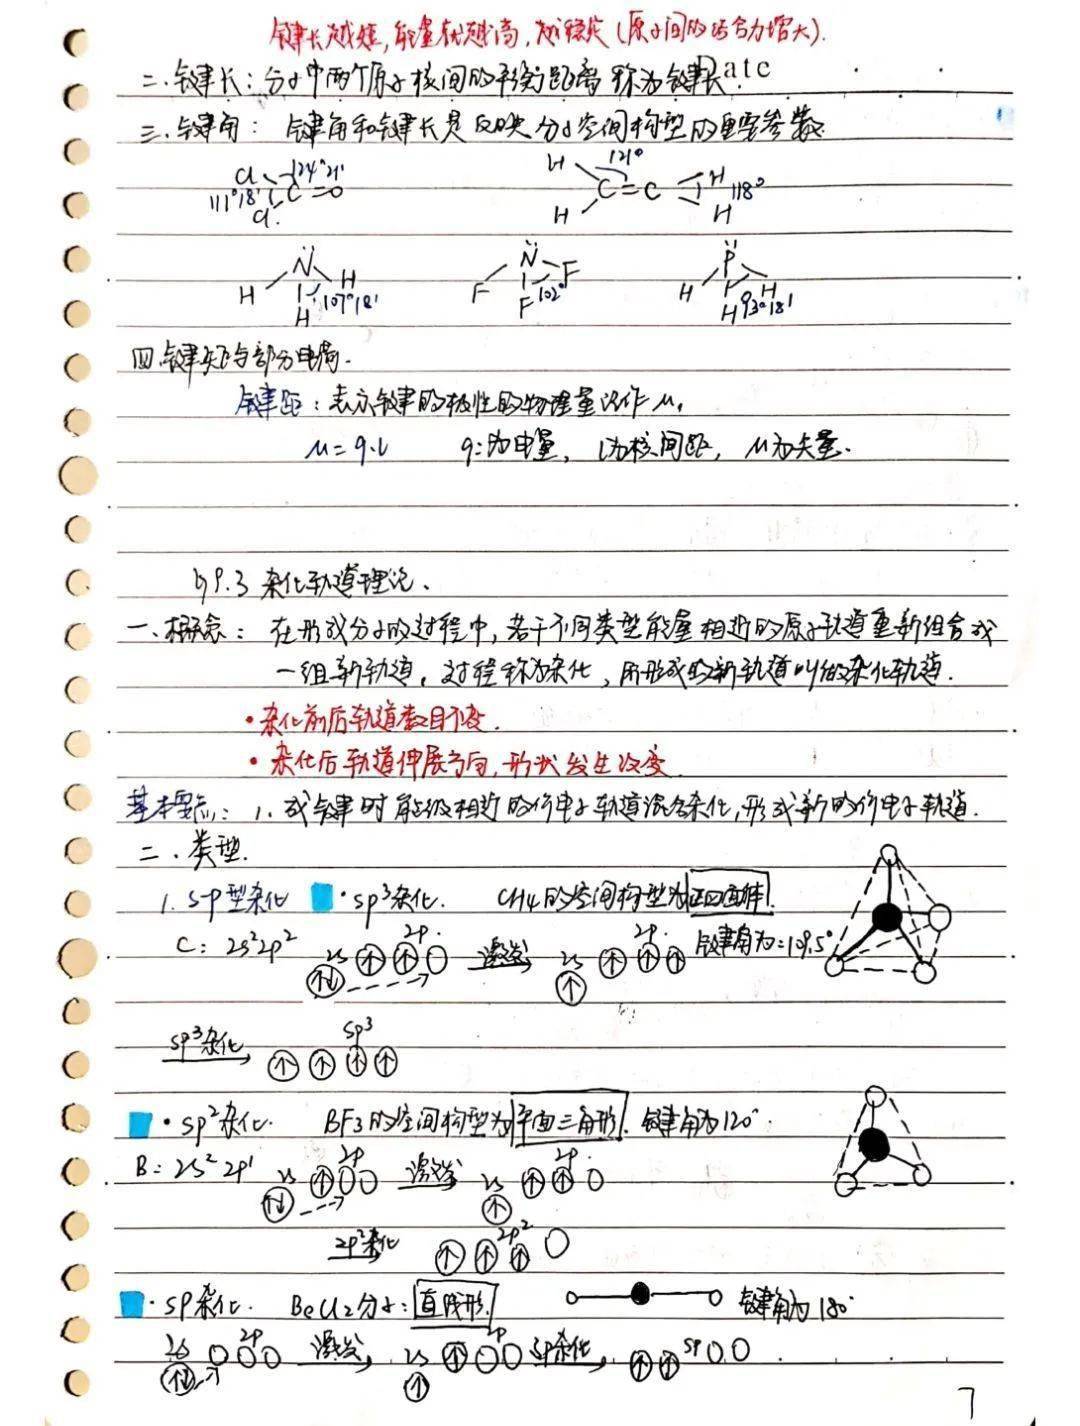 键长越短,能量就越高,越稳定(原子间的结合力增大).
Date
二.键长:分子中两个原子核间的平衡距离称为键长.
三.键角: 键角和键长是反映分子空间构型的重要参数.
Cl 124°21' 111°18' C=O Cl
H 121° C=C H 118° H H
N H H 107°18' H
N F F F 102°
P H H H 93°18'
四.键矩与部分电荷.
键距:表示键的极性的物理量记作μ.
μ=q·l q:为电量, l为核间距, μ为矢量.
§9.3 杂化轨道理论.
一、概念: 在形成分子的过程中,若干不同类型能量相近的原子轨道重新组合成
一组新轨道,过程称为杂化,所形成的新轨道叫做杂化轨道.
·杂化前后轨道数目不变.
·杂化后轨道伸展方向,形状发生改变.
基本要点: 1.成键时能级相近的价电子轨道混合杂化,形成新的价电子轨道.
二.类型.
1. s-p型杂化 ·sp³杂化. CH4的空间构型为正四面体.
C: 2s²2p² 2s 2p. 激发 2s 2p. 键角为:109.5°
sp³杂化 sp³
·sp²杂化. BF3的空间构型为平面三角形. 键角为120°.
B: 2s² 2p¹ 2s 2p 激发 2s 2p.
2p²杂化 2p²
·sp杂化. BeCl2分子:直线形. 键角为180°
2s 2p 激发 2s 2p sp杂化 sp
7